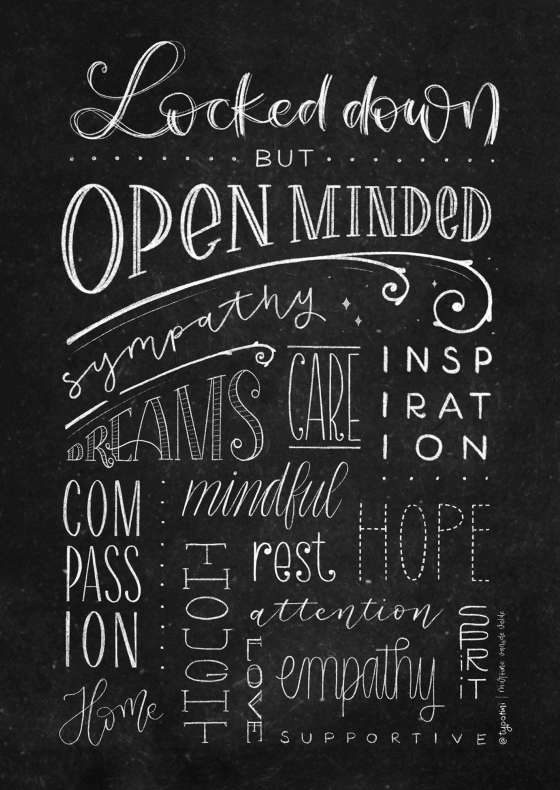 Locked down
BUT
OPEN MINDED
sympathy
DREAMS
CARE
INSP
IRAT
ION
COM
PASS
ION
mindful
HOPE
rest
THOUGHT
attention
LOVE
empathy
SPIRIT
Home
SUPPORTIVE
@typotini